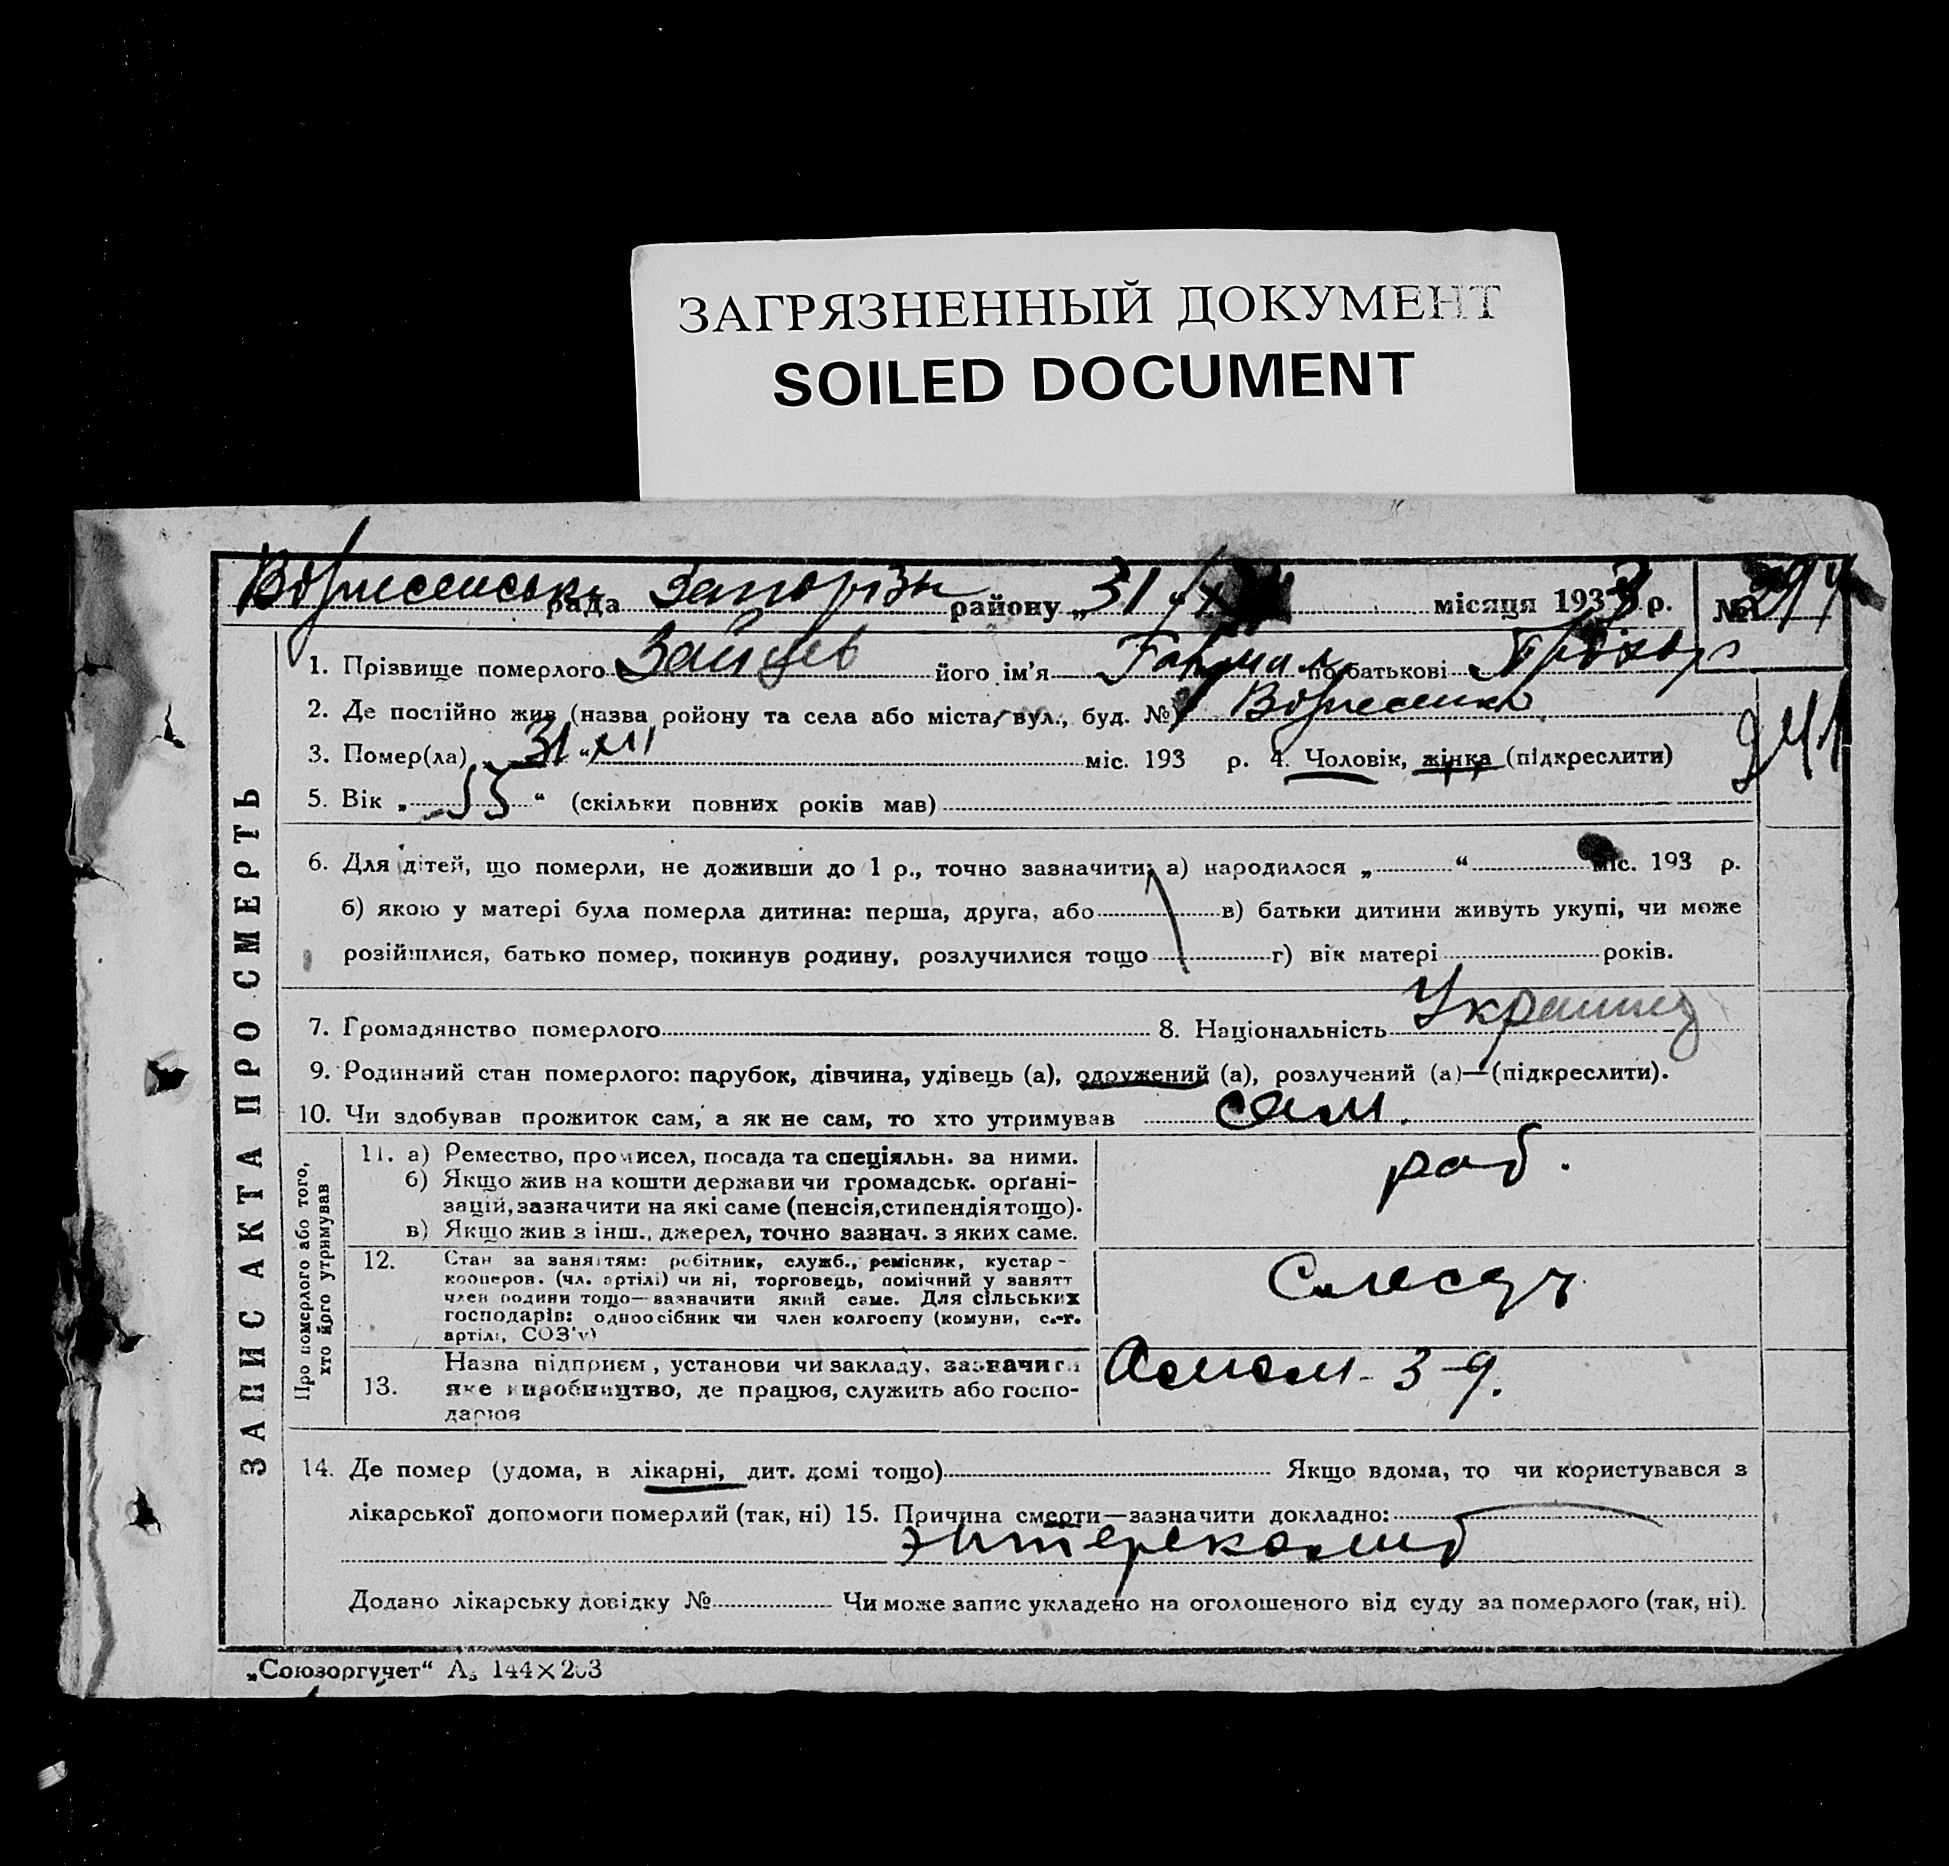 ЗАГРЯЗНЕННЫЙ ДОКУМЕНТ
SOILED DOCUMENT
ЗАПИС АКТА ПРО СМЕРТЬ
рада району „31 місяця 1933 р. №
1. Прізвище померлого Зайцев його ім'я по батькові
2. Де постійно жив (назва ройону та села або міста, вул., буд. №)
3. Помер(ла) „31“ XII міс. 193 р. 4. Чоловік, жінка (підкреслити)
241
5. Вік „55“ (скільки повних років мав)
6. Для дітей, що померли, не доживши до 1 р., точно зазначити: а) народилося „ “ міс. 193 р.
б) якою у матері була померла дитина: перша, друга, або в) батьки дитини живуть укупі, чи може
розійшлися, батько помер, покинув родину, розлучилися тощо г) вік матері років.
7. Громадянство померлого 8. Національність Украинец
9. Родинний стан померлого: парубок, дівчина, удівець (а), одружений (а), розлучений (а)—(підкреслити).
10. Чи здобував прожиток сам, а як не сам, то хто утримував сам.
Про померлого або того, хто його утримував
11. а) Ремество, промисел, посада та спеціяльн. за ними.
б) Якщо жив на кошти держави чи громадськ. орґані-
зацій, зазначити на які саме (пенсія, стипендія тощо).
в) Якщо жив з інш., джерел, точно зазнач. з яких саме.
раб.
12. Стан за заняттям: робітник, служб., ремісник, кустар-
кооперов. (чл. артілі) чи ні, торговець, помічний у занятт
член родини тощо—зазначити який саме. Для сільських
господарів: одноосібник чи член колгоспу (комуни, с.-г.
артілі, СОЗ'у)
Слесарь
13. Назва підприєм, установи чи закладу, зазначити
яке виробництво, де працює, служить або госпо-
дарює
3-д.
14. Де помер (удома, в лікарні, дит. домі тощо) Якщо вдома, то чи користувався з
лікарської допомоги померлий (так, ні) 15. Причина смерти—зазначити докладно:
энтероколит
Додано лікарську довідку № Чи може запис укладено на оголошеного від суду за померлого (так, ні).
„Союзоргучет“ А₅ 144×203